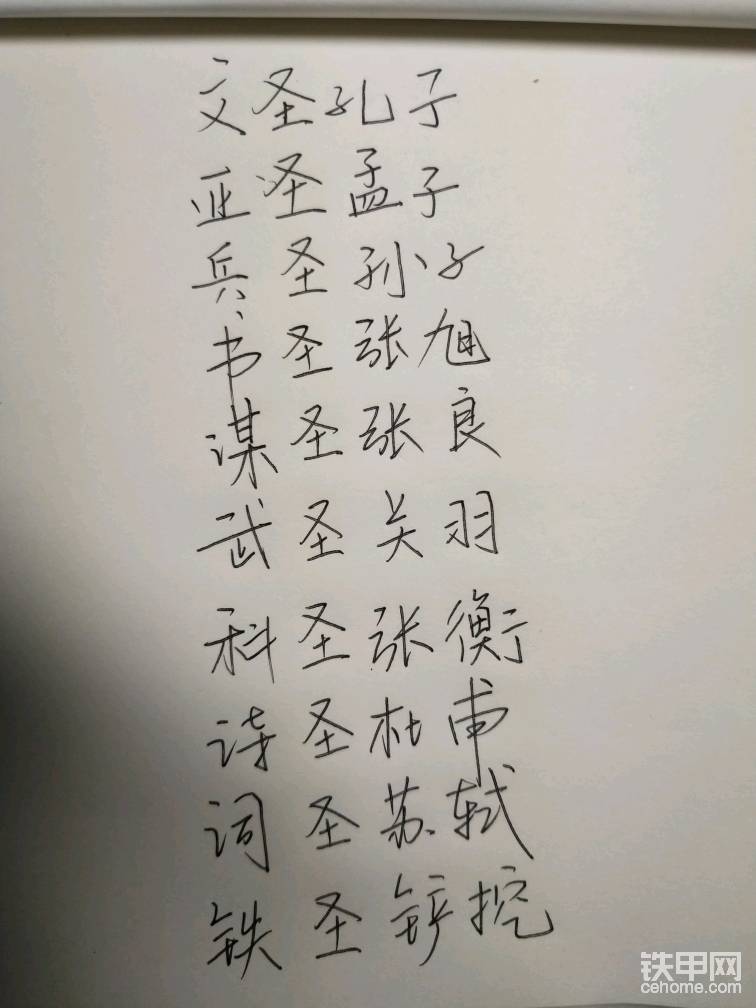 文圣孔子
亚圣孟子
兵圣孙子
书圣张旭
谋圣张良
武圣关羽
科圣张衡
诗圣杜甫
词圣苏轼
铁圣铲挖
铁甲网
cehome.com